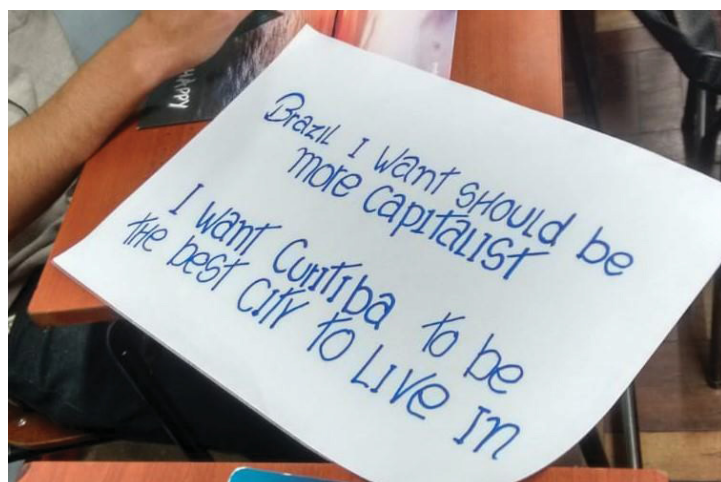 HAPPY
Brazil I want should be
more capitalist
I want Curitiba to be
the best city to live in